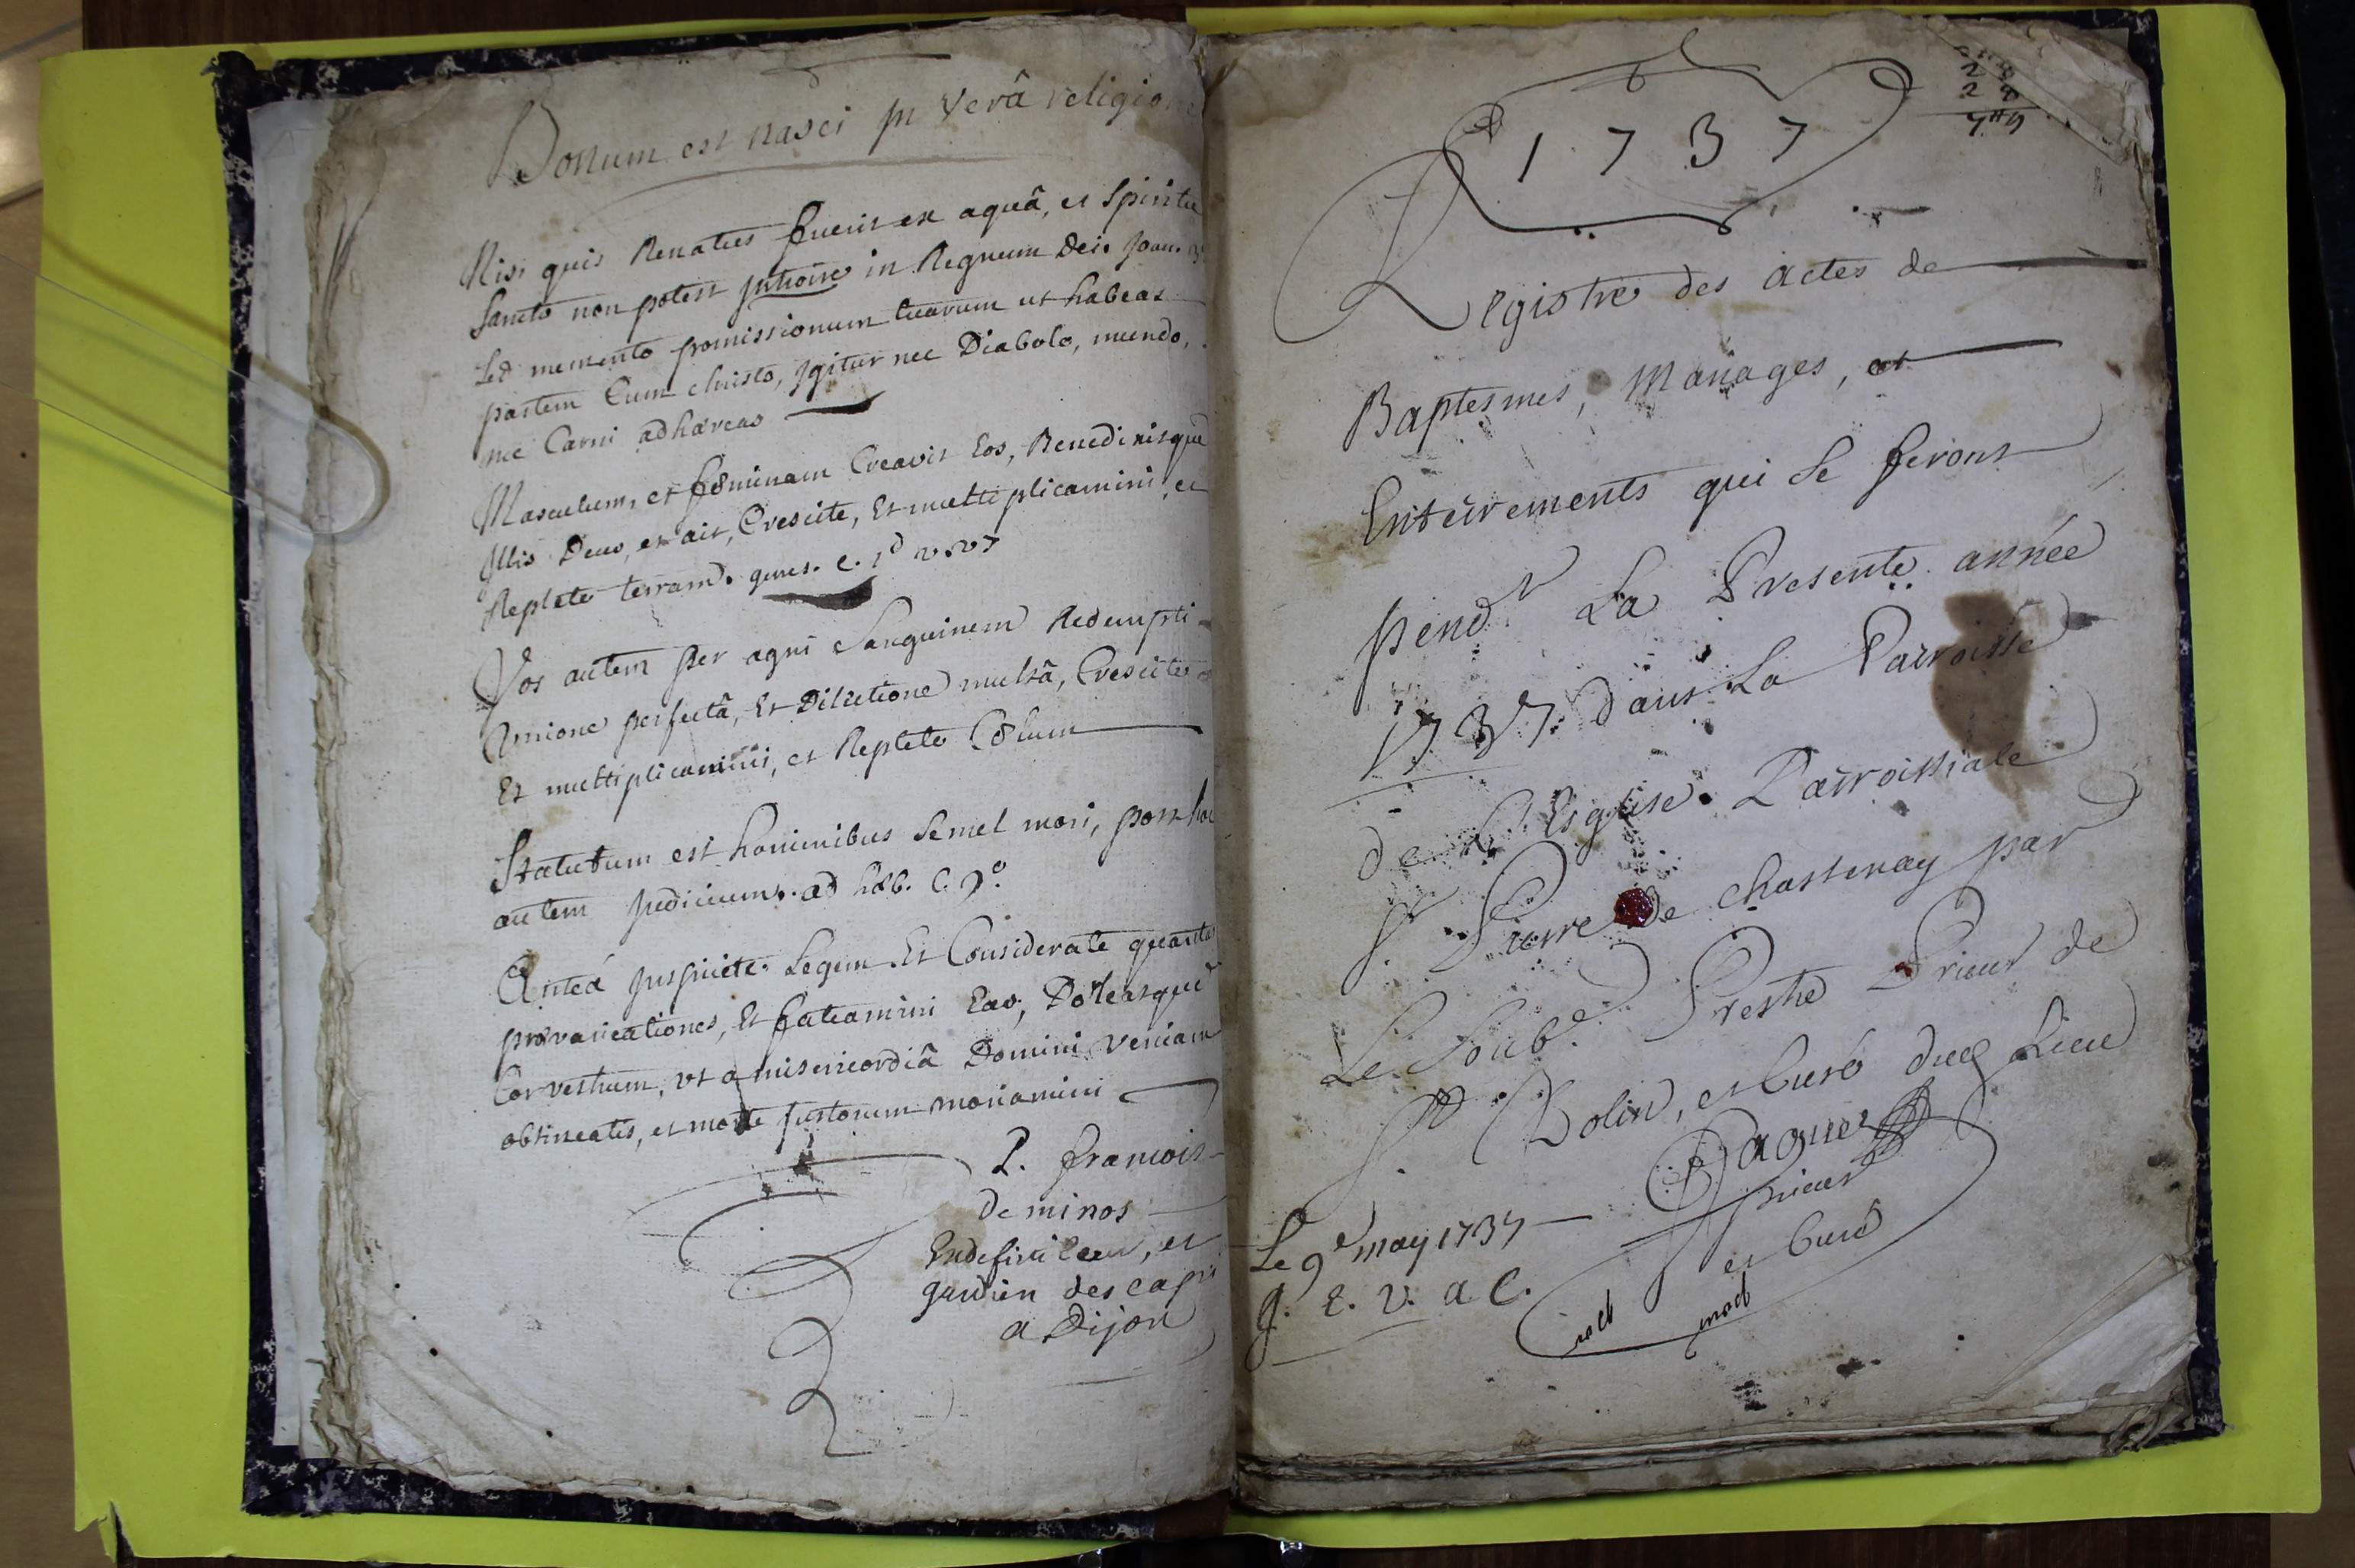 Donum est nasci in verâ religione
Nisi quis Renatus fuerit ex aquâ, et Spiritu
Sancto non potest introire in Regnum Dei. Joan. 3
Sed memento promissionum tuarum ut habeas
partem Cum christo, igitur nec Diabolo, mundo,
nec Carni adhæreas
Masculum, et fœminam Creavit Eos, Benedixitque
Illis Deus, et ait, Crescite, Et multiplicamini, et
Replete terram. genes. c. 1º
Vos autem per agni Sanguinem Redempti
Unione perfectâ, Et Dilectione multâ, Crescite
Et multiplicamini, et Replete Cœlum
Statutum est hominibus Semel mori, post hoc
autem judicium. ad hæb. C. 9º
Anteà juspicite Legem Et Considerate quantas
prævaricationes, Et fateamini Eas, Doleasque
Cor vestrum, ut a misericordiâ Domini veniam
obtineatis, et morte justorum moriamini
P. francois
de minos
Exdefiniteur, et
gardien des cap
a Dijon
1737
Registre des actes de
Baptesmes, Mariages, et
Enterrements qui Se feront
pendt La Presente année
1737 dans La Parroisse
de L'Esglise Parroissiale
St Pierre de Chastenay par
Le Soub. Prestre Prieur de
St Bolin, et Curé dud Lieu
Paquet
prieur
et Curé
Le 9e may 1737
J. E. V. a C.